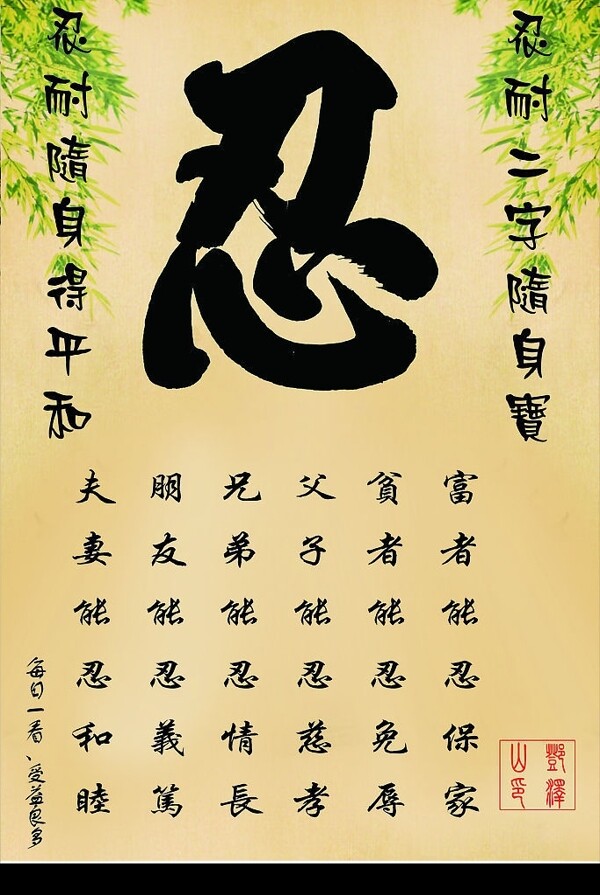 忍
忍耐二字隨身寶
忍耐隨身得平和
富者能忍保家
貧者能忍免辱
父子能忍慈孝
兄弟能忍情長
朋友能忍義篤
夫妻能忍和睦
每日一看、受益良多
鄧澤
山印